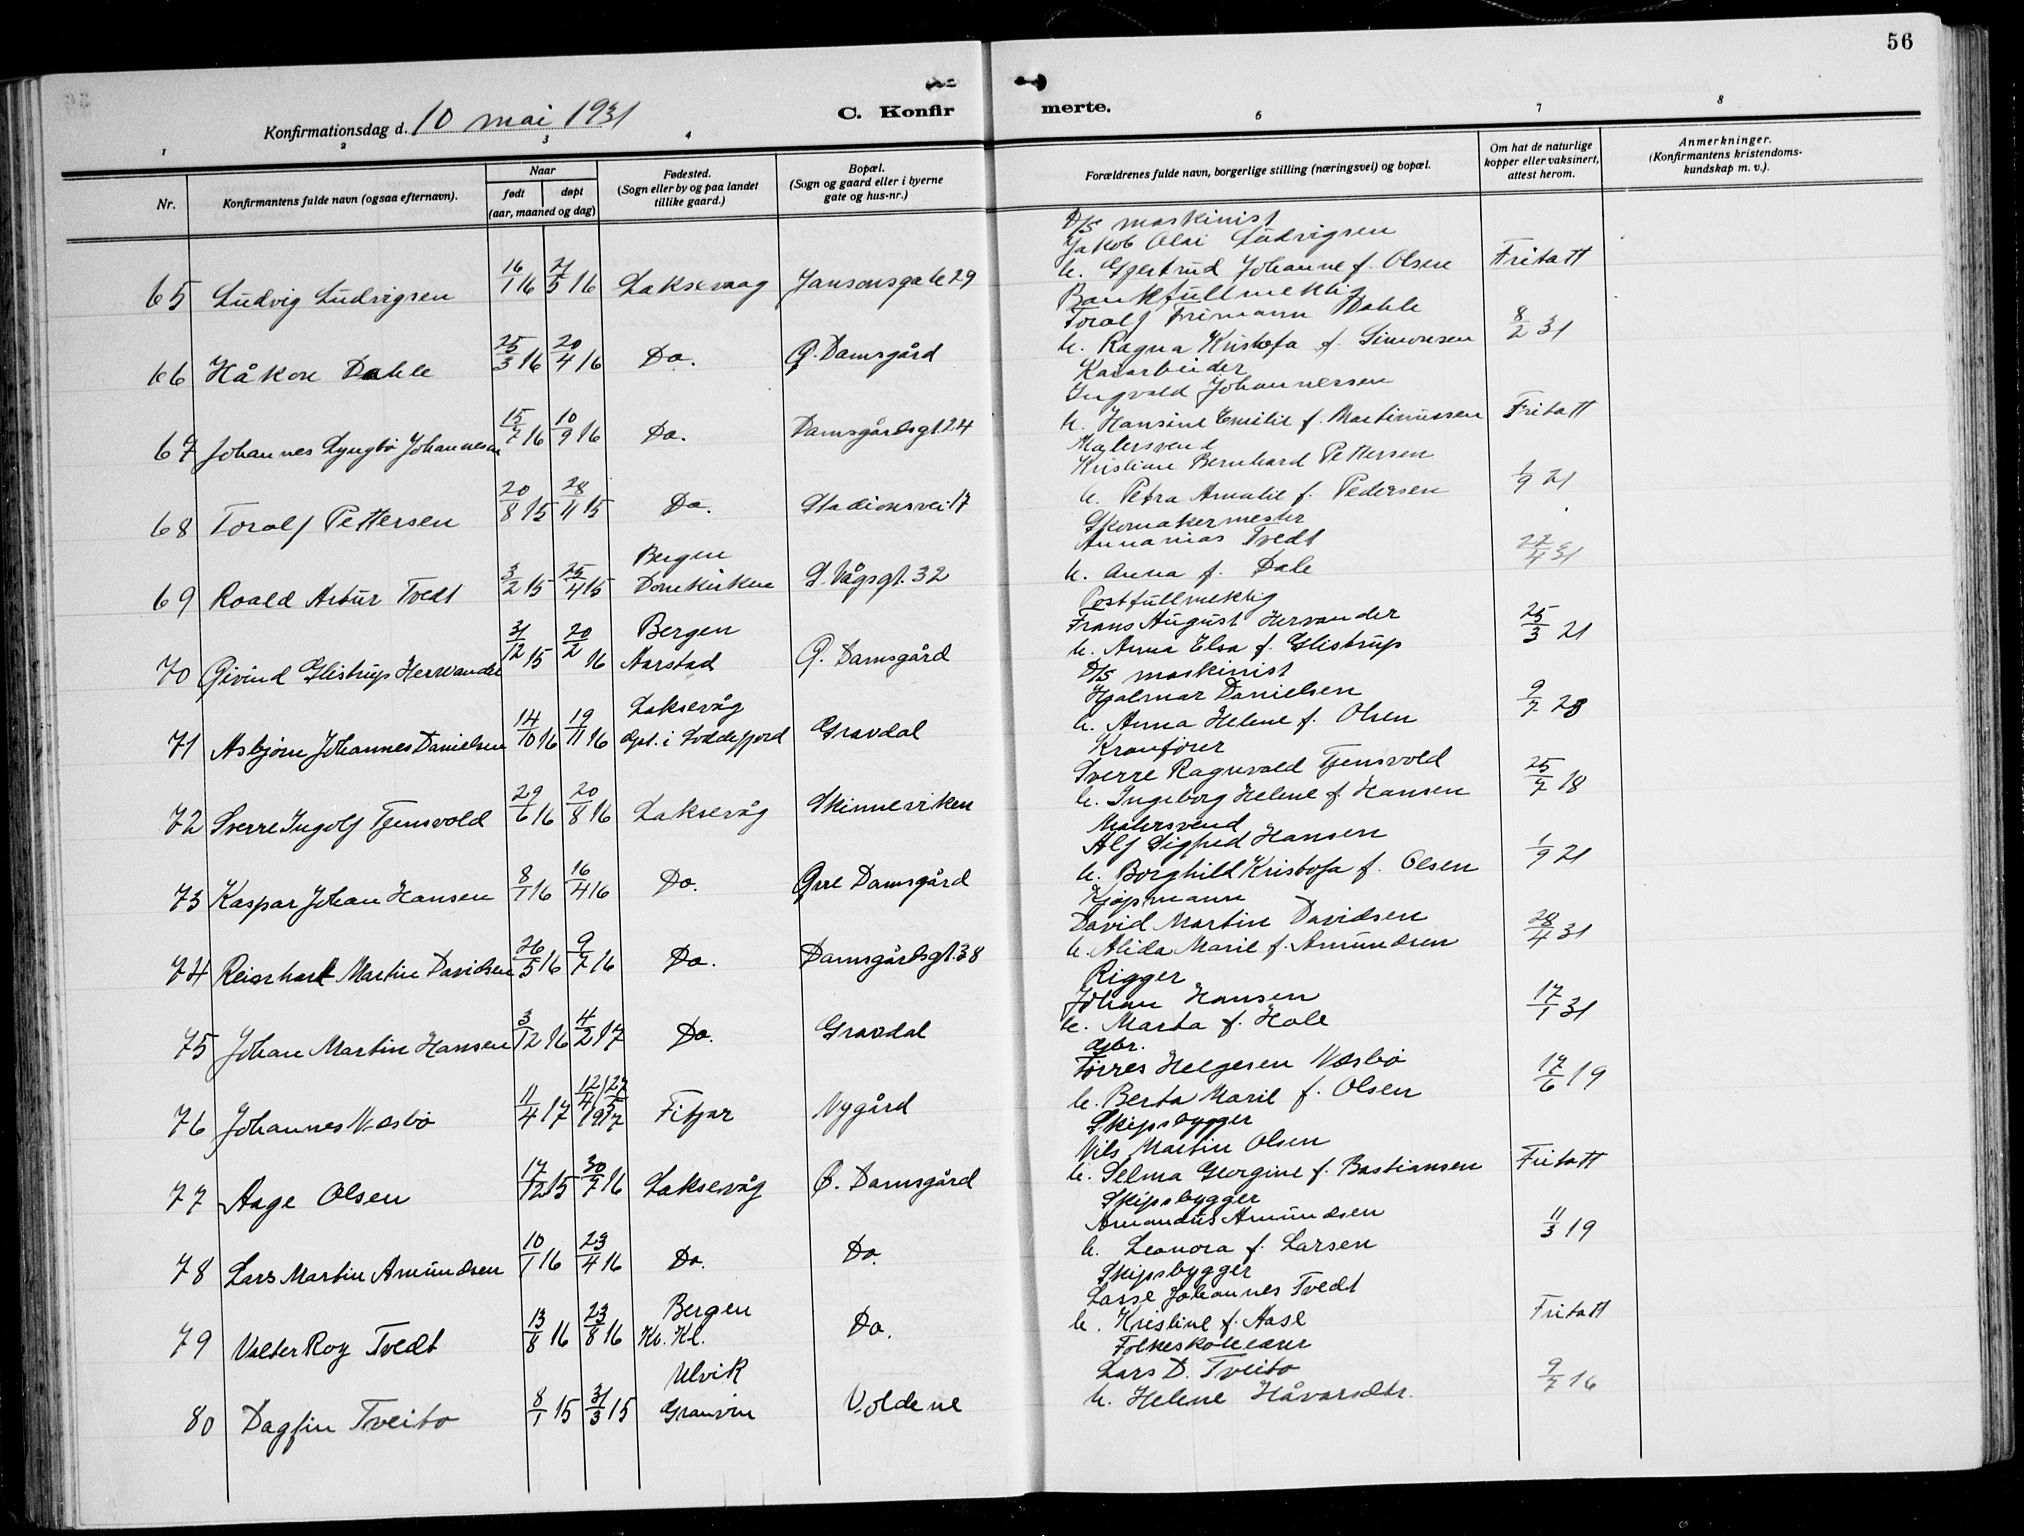 56
Konfirmationsdag d. 10 mai 1931
C. Konfir merte.
1 2 3 4 6 7 8
Nr.
Konfirmantens fulde navn (ogsaa efternavn).
Naar
født døpt
(aar, maaned og dag)
Fødested.
(Sogn eller by og paa landet
tillike gaard.)
Bopæl.
(Sogn og gaard eller i byerne
gate og hus-nr.)
Forældrenes fulde navn, borgerlige stilling (næringsvei) og bopæl.
Om hat de naturlige
kopper eller vaksinert,
attest herom.
Anmerkninger.
(Konfirmantens kristendoms-
kundskap m. v.).
D/S maskinist
Jakob Olai Ludvigsen
65 Ludvig Ludvigsen 16/1 16 21/5 16 Laksevaag Jansonsgate 29 h. Gjertrud Johanne f. Olsen Fritatt
Bankfullmektig
Toralf Frimann Dahle
66 Håkon Dahle 25/3 16 20/4 16 Do. Ø. Damsgård h. Ragna Kristofa f. Simonsen 8/2 31
Kaiarbeider
Ingvald Johannessen
67 Johannes Lyngbö Johannesen 15/7 16 10/9 16 Do. Damsgårdsgt. 24 h. Hansine Emilie f. Martinussen Fritatt
Malersvend
Kristian Bernhard Pettersen
68 Toralf Pettersen 20/8 15 28/11 15 Do. Stadionsvei 17 h. Petra Amalie f. Pedersen 1/9 21
Skomakermester
Annanias Tvedt
69 Roald Artur Tvedt 3/2 15 25/4 15 Bergen Domkirken S. Vågsgt. 32 h. Anna f. Dale 27/4 31
Postfullmektig
Frans August Hervander
70 Øivind Glistrup Herwander 31/12 15 20/2 16 Bergen Aarstad Ø. Damsgård h. Anna Elsa f. Glistrup 25/3 21
D/S maskinist
Hjalmar Danielsen
71 Asbjørn Johannes Danielsen 14/10 16 19/11 16 Laksevåg dpt. i Loddefjord Gravdal h. Anna Helene f. Olsen 9/7 23
Kranfører
Sverre Ragnvald Tjensvold
72 Sverre Ingolf Tjensvold 29/6 16 20/8 16 Laksevåg Skinneviken h. Ingeborg Helene f. Hansen 25/7 18
Malersvend
Alf Sigfred Hansen
73 Kaspar Johan Hansen 8/1 16 16/4 16 Do. Øvre Damsgård h. Borghild Kristofa f. Olsen 1/9 21
Kjøpmann
David Martin Davidsen
74 Reinhart Martin Davidsen 26/5 16 9/7 16 Do. Damsgårdsgt. 38 h. Alida Marie f. Amundsen 28/4 31
Rigger
Johan Hansen
75 Johan Martin Hansen 3/12 16 4/2 17 Do. Gravdal h. Marta f. Hole 17/1 31
gbr.
Tørres Helgesen Næsbø
76 Johannes Næsbø 11/4 17 12/4 | 27/5 1917 Fitjar Nygård h. Berta Marie f. Olsen 17/6 19
Skipsbygger
Nils Martin Olsen
77 Aage Olsen 17/12 15 30/7 16 Laksevåg Ø. Damsgård h. Selma Georgine f. Bastiansen Fritatt
Skipsbygger
Amandus Amundsen
78 Lars Martin Amundsen 10/1 16 23/4 16 Do. Do. h. Leonora f. Larsen 11/3 19
Skipsbygger
Lasse Johannes Tvedt
79 Valter Roy Tvedt 13/8 16 23/8 16 Bergen Kv. Kl. Do. h. Kristine f. Aase Fritatt
Folkeskolelærer
Lars D. Tveito
80 Dagfin Tveito 8/1 15 31/3 15 Ulvik Granvin Voldene h. Helene Håvarsdtr. 9/7 16